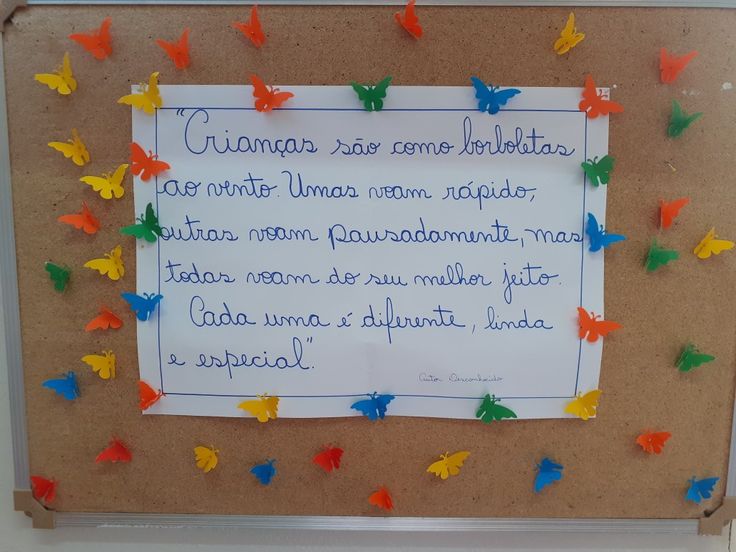 "Crianças são como borboletas
ao vento. Umas voam rápido,
outras voam pausadamente, mas
todas voam do seu melhor jeito.
Cada uma é diferente, linda
e especial".
Autor Desconhecido